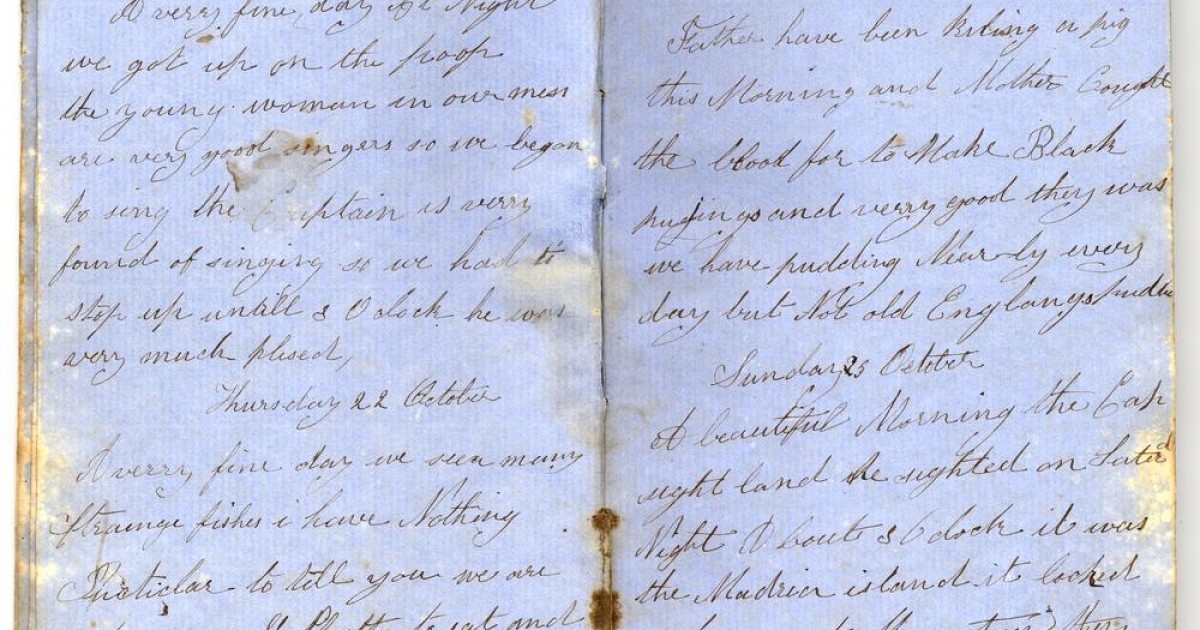 A verry fine day At Night
we got up on the poop
the young woman in our mess
are very good singers so we began
to sing the Captain is verry
found of singing so we had to
stop up untill 8 O clock he was
very much plised,
Thursday 22 October
A verry fine day we seen many
strainge fishes i have Nothing
Particlar to tell you we are
to eat and
Father have been kiling a pig
this Morning and Mother Cought
the blood for to Make Black
pudings and verry good they was
we have pudding Near-ly every
day but Not old Englangs
Sunday 25 October
A beautiful Morning the Cap
sight land he sighted on Saterd
Night About 8 O clock it was
the Madria island it looked